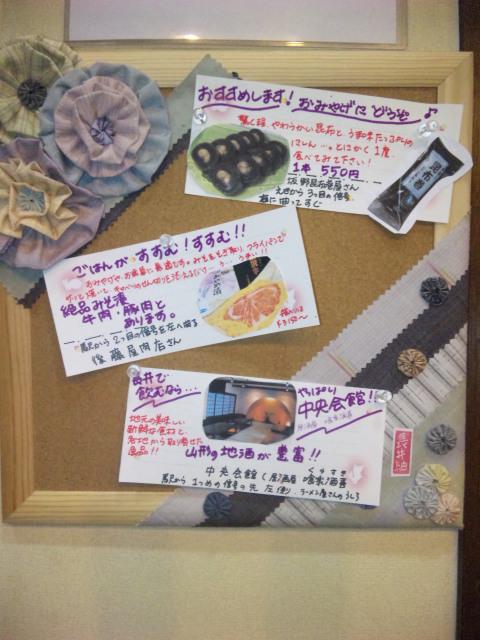 おすすめします! おみやげに どうぞ ♪
驚く程、やわらかい昆布と、うま味たっぷりの
にしん…。とにかく1度
食べてみて下さい!
1本 550円
駅から 3つ目の信号
右に曲ってすぐ
昆布巻
ごはんが すすむ!すすむ!!
おみやげや、お歳暮に最適です。みそをそぎ取り、フライパンで
絶品みそ漬
牛肉・豚肉と
あります。
駅から 2つ目の信号を左へ曲る
後藤屋肉店さん
箱入りは
¥3150〜
長井で
飲むなら…
やっぱり
中央会館!!
居酒屋 喰酒喜
地元の美味しい
新鮮な食材と、
各地から取り寄せた
逸品!!
山形の地酒が 豊富!!
中央会館(居酒屋 喰酒喜
駅から 1つめの信号の先 左側、ラーメン屋さんのうしろ
長井紬